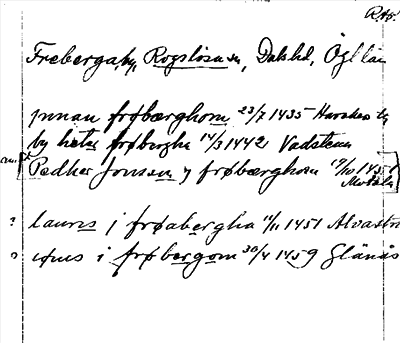 RAp.
Freberga, by, Rogslösa sn, Dals hd, Ög län
jnnan frøbærghom 23/7 1435
by heter frøburgha 14/3 1442 Vadstena
Pedher Jonsson j frøbærghom 19/10 1435
Motala
? lauris j frøabergha 11/11 1451 Alvastra
? i frøbergom 30/4 1459 Glänås